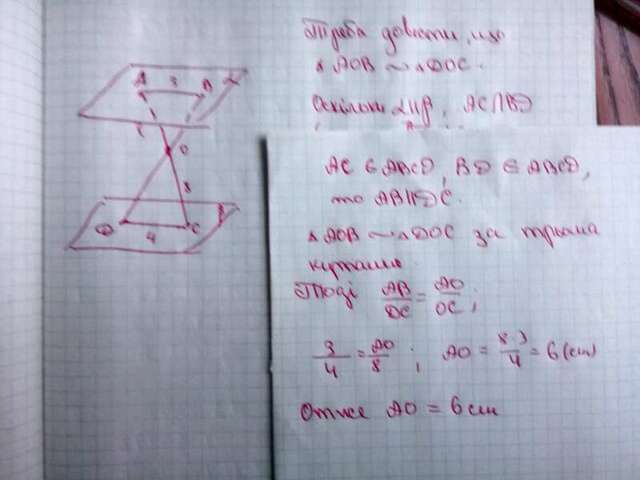 A 3 B α
O
8
D 4 C β
Треба довести, що
△ AOB ~ △ DOC.
Оскільки α II β, AC ∩ BD
AC ∈ ABCD, BD ∈ ABCD,
то AB II DC.
△ AOB ~ △ DOC за трьома
кутами.
Тоді AB/DC = AO/OC;
3/4 = AO/8 ; AO = 8·3/4 = 6 (см)
Отже AO = 6 см